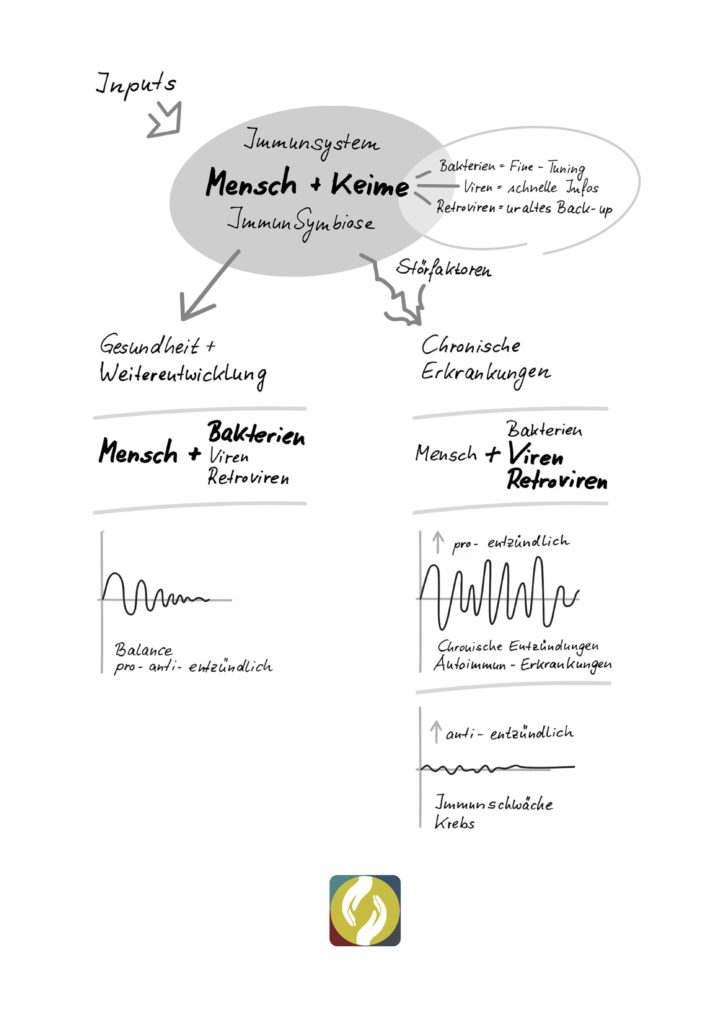 Inputs
Immunsystem
Mensch + Keime
ImmunSymbiose
Bakterien = Fine-Tuning
Viren = schnelle Infos
Retroviren = uraltes Back-up
Störfaktoren
Gesundheit +
Weiterentwicklung
Mensch + Bakterien
Viren
Retroviren
Balance
pro- anti- entzündlich
Chronische
Erkrankungen
Bakterien
Mensch + Viren
Retroviren
pro- entzündlich
Chronische Entzündungen
Autoimmun-Erkrankungen
anti- entzündlich
Immunschwäche
Krebs